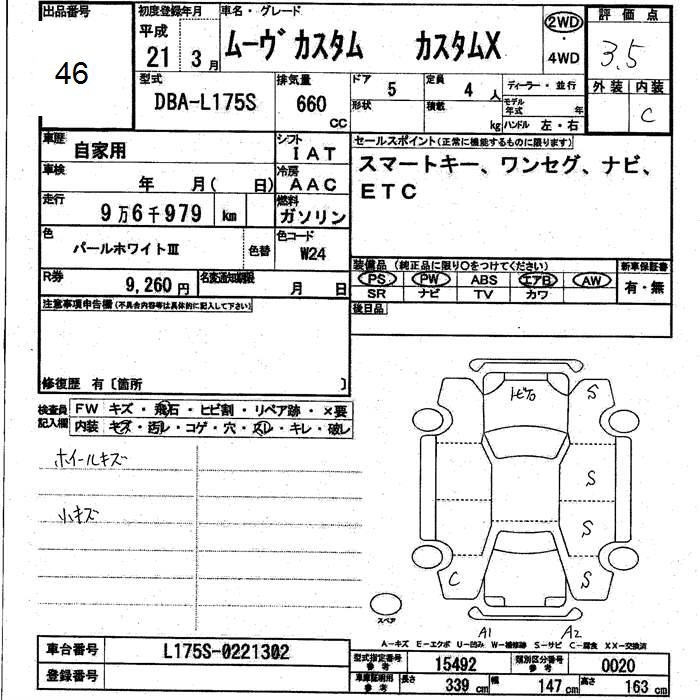 出品番号
46
初度登録年月
平成
21 3月
車名・グレード
ムーヴ カスタム カスタムX
2WD
・
4WD
評価点
3.5
外装 内装
C
型式
DBA-L175S
排気量
660
CC
ドア
5
定員
4 人
形状
積載
kg
ディーラー・並行
モデル年式 年
ハンドル 左・右
車歴
自家用
シフト
IAT
車検
年 月( 日)
冷房
AAC
走行
9万6千979 km
燃料
ガソリン
色
パールホワイトⅢ
色替
色コード
W24
R券
9,260円
名変通知期限
月 日
セールスポイント(正常に機能するものに限ります)
スマートキー、ワンセグ、ナビ、
ETC
装備品(純正品に限り○をつけてください)
PS PW ABS エアB AW
SR ナビ TV カワ
新車保証書
有・無
後日品
注意事項申告欄(不具合内容等は具体的に記入して下さい)
修復歴 有〔箇所 〕
検査員
記入欄
FW キズ・飛石・ヒビ割・リペア跡・×要
内装 キズ・汚レ・コゲ・穴・スレ・キレ・破レ
ホイールキズ
小キズ
S
S
S
C
S
スペア
A1
A2
A-キズ E-エクボ U-凹み W-補修跡 S-サビ C-腐食 XX-交換済
車台番号
L175S-0221302
登録番号
型式指定番号
参考
15492
類別区分番号
参考
0020
車庫証明用
参考
長さ
339 cm
幅
147 cm
高さ
163 cm